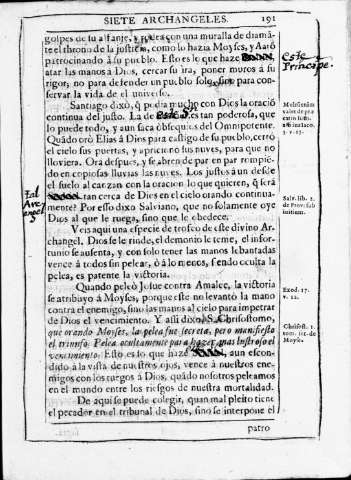 SIETE ARCHANGELES. 191
golpes de su alfanje, y rodea con una muralla de diamã-
te el throno de la justicia, como lo hazia Moyses, y Aarõ
patrocinando à su pueblo. Esto es lo que haze
este Principe.
atar las manos à Dios, cercar su ira, poner muros à su
rigor, no para defender un pueblo solo, sino para con-
servar la vida de el universo.
Santiago dixò, q podia mucho con Dios la oració
continua del justo. La de este S.r es tan poderosa, que
lo puede todo, y aun saca obsequios del Omnipotente.
Quãdo orò Elias à Dios para castigo de su pueblo, cerrò
el cielo sus puertas, y aprisionò sus nuves, para que no
lloviera. Orà despues, y se abren de par en par rompiē-
do en copiosas lluvias las nuves. Los justos à un desde
el suelo alcanzan con la oracion lo que quieren, q serà
tal Arcangel
tan cerca de Dios en el cielo orando continua-
mente? Por esso dixo Salviano, que no solamente oye
Dios al que le ruega, sino que le obedece.
Veis aqui una especie de trofeo de este divino Ar-
changel. Dios se le rinde, el demonio le teme, el infor-
tunio se ausenta, y con solo tener las manos lebantadas
vence à todos sin pelear, ò à lo menos, siendo oculta la
pelea, es patente la victoria.
Quando peleò Josue contra Amalec, la victoria
se atribuyò à Moyses, porque este no levantò la mano
contra el enemigo, sino las manos al cielo para impetrar
de Dios el vencimiento. Y assi dixo S. Chrisostomo,
que orando Moyses, la pelea fue secreta, pero manifiesto
el triunfo. Pelea ocultamente para hazer mas lustroso el
vencimiento. Esto es lo que haze
aun escon-
dido à la vista de nuestros ojos, vence à nuestros ene-
migos con los ruegos à Dios, quãdo nosotros peleamos
en el mundo entre los riesgos de nuestra mortalidad.
De aqui se puede colegir, quan mal pleito tiene
el pecador en el tribunal de Dios, sino se interpone el
patro
Exod. 17.
v. 11.
Moyse.